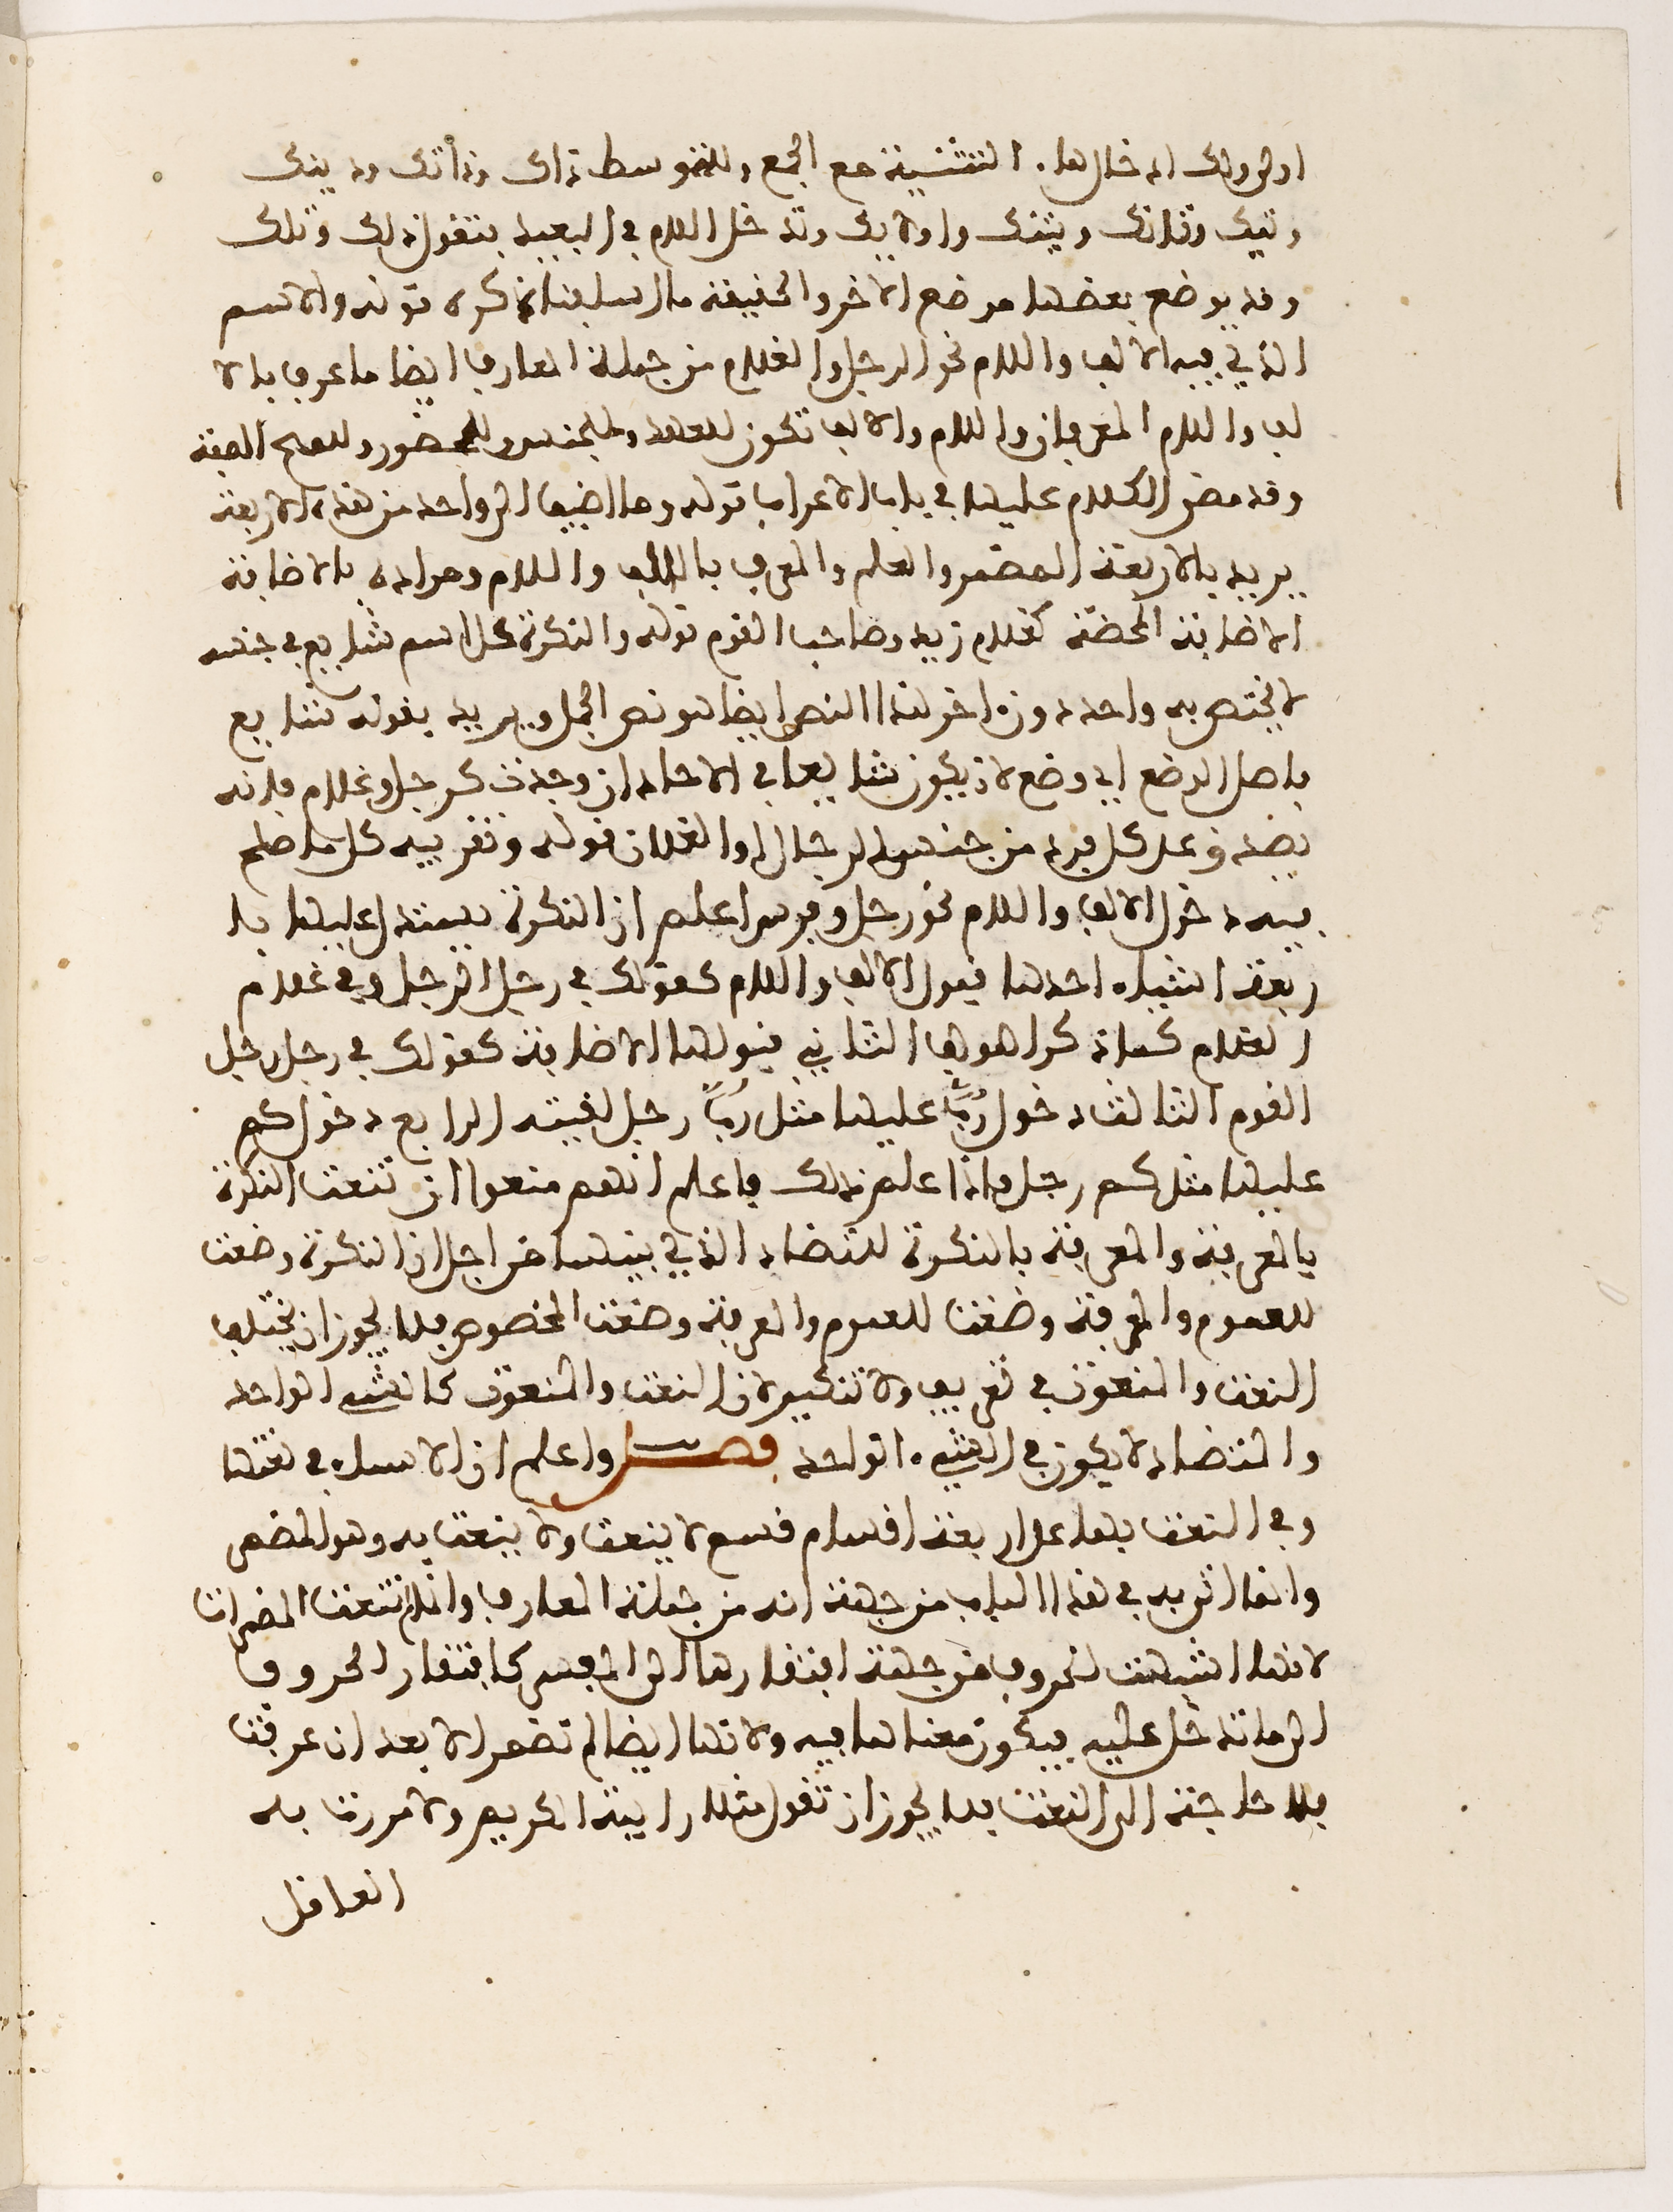 اولى ولك ادخالها. التثنية مع الجمع وللمتوسط ذاك وذانك وذينك
وتيك وتانك وتينك واولايك وتدخل اللام في البعيد فتقول ذلك وتلك
وقد يوضع بعضها موضع الاخر والحقيقة ما اسلفنا ذكره قوله والاسم
الذي فيه الالف واللام نحو الرجل والغلام من جملة المعارف ايضا ما عرف بالا
لف واللام المعرفان واللام والالف تكون للعهد وللجنس وللحضور وللمح الصفة
وقد مضى الكلام عليها في باب الاعراب قوله وما اضيف الى واحد من هذه الاربعة
يريد بالاربعة المضمر والعلم والمعرف بالالف واللام ومراده بالاضافة
الاضافة المحضة كغلام زيد وصاحب القوم قوله والنكرة كل اسم شايع في جنسه
لا يختص به واحد دون اخر هذا النص ايضا هو نص الجمل ويريد بقوله شايع
باصل الوضع اي وضع لان يكون شايعا في الاحاد ان وجدت كرجل وغلام فانه
يصدق على كل فرد من جنس الرجال او الغلمان قوله وتقريبه كل ما صلح
فيه دخول الالف واللام نحو رجل وفرس اعلم ان النكرة يستدل عليها با
ربعة اشياء احدها قبول الالف واللام كقولك في رجل الرجل وفي غلام
الغلام كما ذكر المؤلف الثاني قبولها الاضافة كقولك في رجل رجل
القوم الثالث دخول رُبَّ عليها مثل رُبَّ رجل لقيته الرابع دخول كم
عليها مثل كم رجل فاذا علم ذلك فاعلم انهم منعوا ان تنعت النكرة
بالمعرفة والمعرفة بالنكرة للتضاد الذي بينهما من اجل ان النكرة وضعت
للعموم والمعرفة وضعت للعموم والمعرفة وضعت للخصوص فلا يجوز ان يختلف
النعت والمنعوت في تعريف ولا تنكير لان النعت والمنعوت كالشيء الواحد
والتضاد لا يكون في الشيء الواحد فصل واعلم ان الاسماء في نعتها
وفي النعت بها على اربعة اقسام قسم لا ينعت ولا ينعت به وهو المضمر
وانما اتى به في هذا الباب من جهة انه من جملة المعارف وانما لم تنعت المضمرات
لانها اشبهت الحروف من جهة افتقارها الى المفسر كافتقار الحروف
الى ما تدخل عليه فيكون معناها فيه ولانها ايضا لم تضمر الا بعد ان عرفت
فلا حاجة الى النعت فلا يجوز ان تقول مثلا رايته الكريم ولا مررت به
العاقل